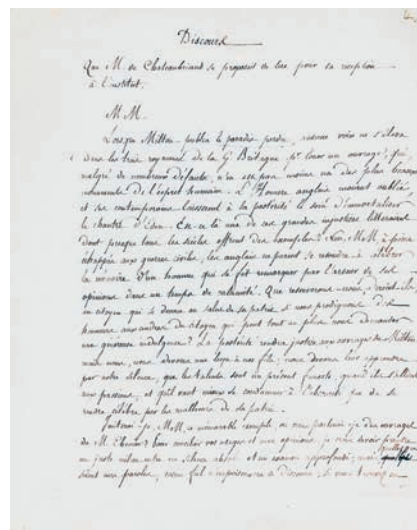 Discours
Que M. de Chateaubriant se proposait de lire pour sa reception
à l'institut.
M M.
Lorsque Milton publia le paradis perdu, aucune voix ne s'éleva
dans les trois royaumes de la Gde Bretagne pr louer un ouvrage, qui
malgré de nombreux défauts, n'en est pas moins un des plus beaux
monuments de l'esprit humain. L'Homère anglais mourut oublié
et ses contemporains laissèrent à la postérité le soin d'immortaliser
le chantre d'Eden. Est-ce là une de ces grandes injustices littéraires
dont presque tous les siècles offrent des exemples? Non, MM, à peine
échappés aux guerres civiles, les anglais ne purent se resoudre à célébrer
la mémoire d'un homme qui se fit remarquer par l'ardeur de ses
opinions dans un temps de calamité. Que reserverons-nous, dirent-ils,
au citoyen qui se dévoue au salut de sa patrie, si nous prodiguons les
honneurs aux cendres du citoyen qui peut tout au plus nous demander
une généreuse indulgence? La postérité rendra justice aux ouvrages de Milton
mais nous, nous devons une leçon à nos fils; nous devons leur apprendre
par notre silence, que les talents sont un présent funeste, quand ils s'allient
aux passions, et qu'il vaut mieux se condamner à l'obscurité, que de se
rendre célèbre par les malheurs de sa patrie.
Imiterai-je, MM, ce mémorable exemple, ou vous parlerai-je des ouvrages
de M. Chenier? Pour concilier vos usages et mes opinions, je crois devoir prendre
un juste milieu entre un silence absolu et un examen approfondi; mais quelles que
soient mes paroles, aucun fiel n'empoisonnera ce discours: si vous